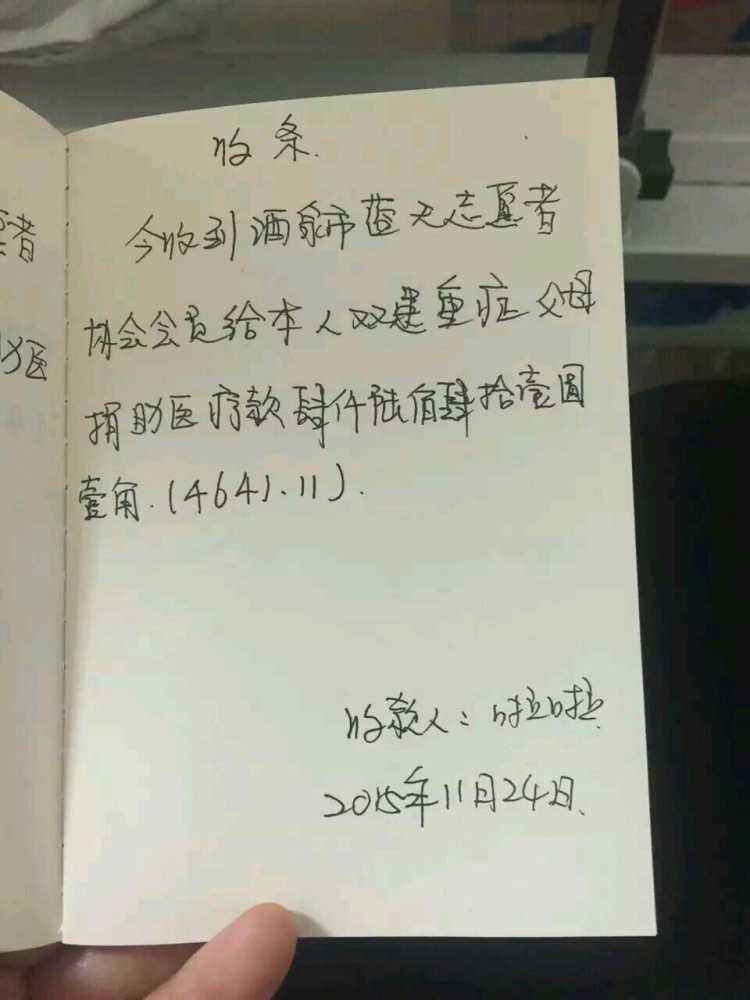 收条.
今收到酒泉市蓝天志愿者
协会会员给本人双患重症父母
捐助医疗款肆仟陆佰肆拾壹圆
壹角.(4641.11).
收款人:啦啦
2015年11月24日.
者
助医